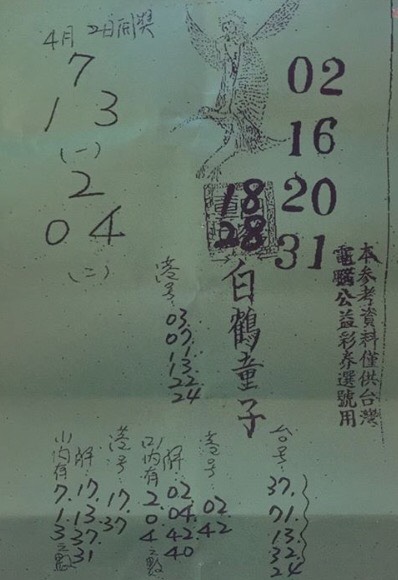 4月 2日開獎
7
1 3
(一)
2
0 4
(二)
02
16
20
31
18
28
白鶴童子
本參考資料僅供台灣
電腦公益彩券選號用
港号:
03.
07.
13.
22.
24
台号:
37.
71.
13.
32.
24
港号:
02.
42
解:
02.
04.
42.
40
(二)内有
2.
0.
4之點
港号:
17.
37
解:
17.
13.
37.
31
(一)内有
7.
1.
3之點